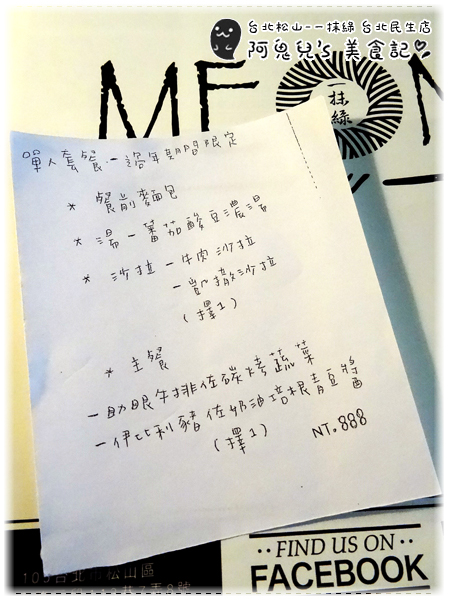 台北松山--一抹綠 台北民生店
阿鬼兒's 美食記♥
MEN
一抹綠
單人套餐-過年期間限定
* 餐前麵包
* 湯-蕃茄酸豆濃湯
* 沙拉-牛肉沙拉
-凱撒沙拉
(擇1)
* 主餐
-肋眼牛排佐碳烤蔬菜
-伊比利豬佐奶油培根青豆醬
(擇1) NT.888
105台北市松山區
‧‧FIND US ON‧‧
FACEBOOK